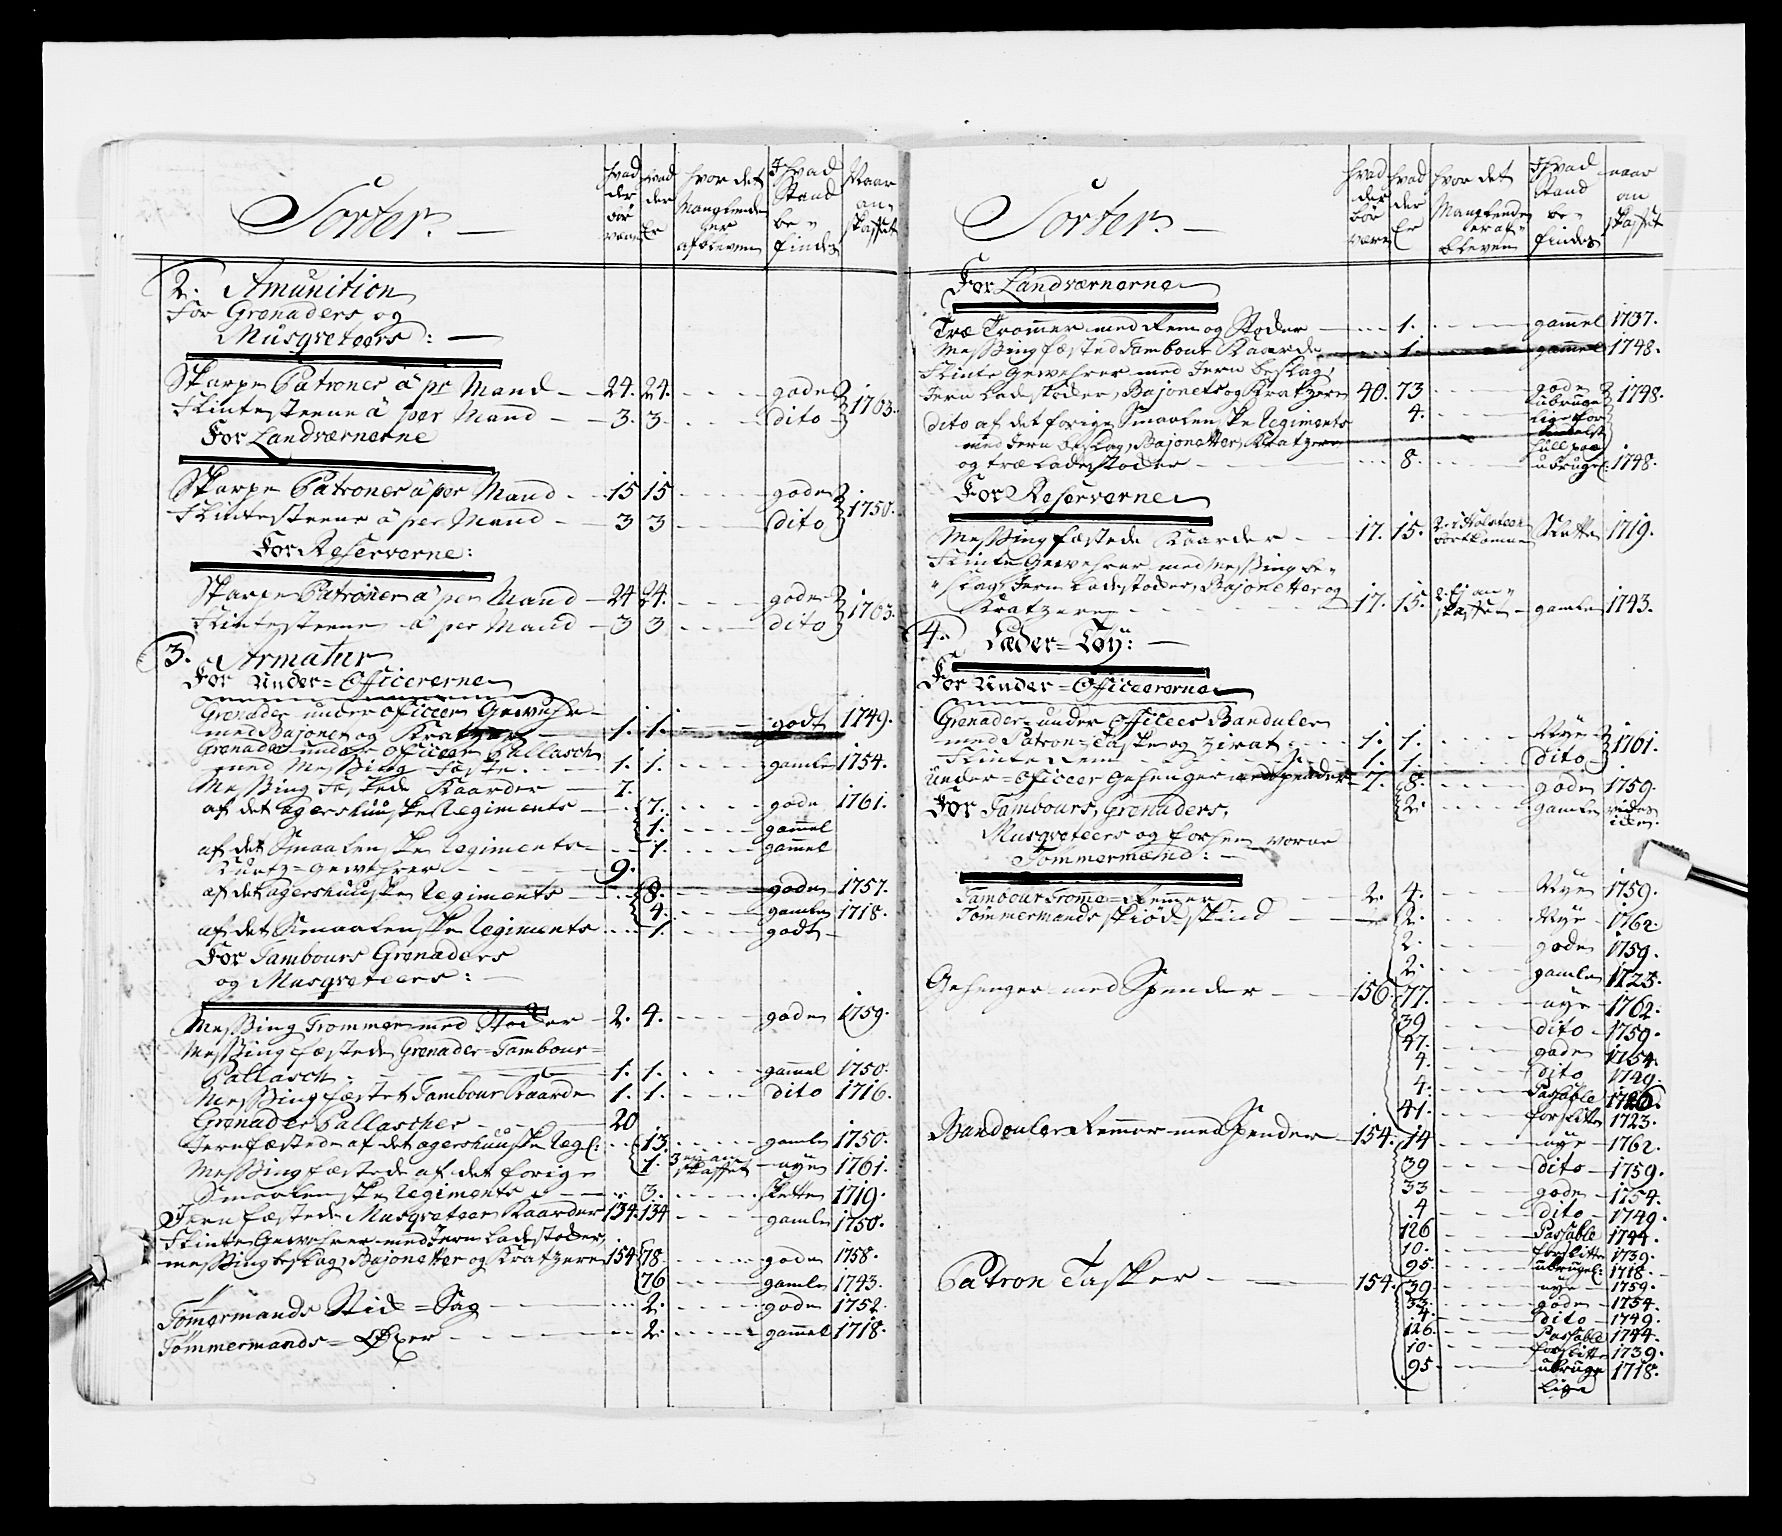 Sorter.
hvad der bør være
hvad der Er
hvor det Manglende er afbleven
I hvad Stand be- findes
Naar an- skaffet
2. Amunition
For Grenaders og
Musqveteers:
Skarpe Patroner á pr Mand 24. 24. gode 1763.
Flintesteene á per Mand 3. 3. dito
For Landværnerne
Skarpe Patroner á per Mand 15 15 gode 1750.
Flintesteene á per Mand 3 3 dito
For Reserverne:
Skarpe Patroner á per Mand 24 24. gode 1763.
Flintesteene á per Mand 3 3 dito
3. Armatur
For Under-Officererne
Grenader under officeer Gewehr
med Bajonet og Kratzer 1. 1. godt 1749.
Grenader under officeer Pallasch
med Messing Fæste 1. 1. gamle 1754.
Messing Fæstede Kaarder 7.
af det agershuuske Regiments 7. gode 1761.
1. gammel
af det Smaalenske Regiments 1. gammel
Kurtz-gewehrer 9.
af det agershuuske Regiments 8. gode 1757.
4. gamle 1718.
af det Smaalenske Regiments 1. godt
For Tambours Grenaders
og Musqveteers:
Messing Trommer med Stoder 2. 4. gode 1759.
Messing fæstede Grenader-Tambour-
Pallasch 1. 1. gammel 1750.
Messing fæstet Tambour Kaarde 1. 1. dito 1716.
Grenader Pallascher 20
Jernfæstede af det agershuuske Reg: 13. gamle 1750.
Messing fæstede af det forige 1. 3 ny an skaffet nye 1761.
Smaalenske Regiments 3. slette 1719.
Jernfæstede Musqveteer Kaarder 134. 134 gamle 1750.
Flinte Gewehrer med Jern Ladestoder,
messing beslag, Bajonetter og Kratzere 154 78 gode 1758.
76 gamle 1743.
Tømmermands Stid-Sag 2. gode 1752.
Tømmermands-Øxer 2. gammel 1718.
Sorter.
hvad der bør være
hvad der Er
hvor det Manglende er af- bleven
I hvad Stand be- findes
naar an skaffet
For Landværnerne
Træ Trommer med Rem og Stoder 1. gammel 1737.
Messing fæsted Tambour Kaarde 1. gammel 1748.
Flinte Gewehrer med Jern beslag,
Jern Ladestoder, Bajonets og Kratzere 40. 73 gode 1748.
dito af det forige Smaalenske Regiments 4. ubruge lige for
med Jern beslag, Bajonetter, Kratzere
og træ Ladestoder 8. ubrugel: 1748.
For Reserverne
Messing fæstede Kaarder 17. 15. 2 i Holsteen bortkomne Slette 1719.
Flinte Gewehrer med Messing be-
slag, Jern Ladestoder, Bajonetter og
Kratzere 17. 15. 2 Ej an- skaffet gamle 1743.
4. Læder-Tøy:
For Under-Officeererne
Grenader-under officeer Banduleer
med Patron-Taske og Zirat 1. 1. Nye 1761.
Flinte Rem 1. 1. dito
Under-Officeer Gehenger med spender 7. 8. gode 1759.
2. gamle
For Tambours, Grenaders,
Musqveteers og forhen værende
Tømmermænd:
Tambour Tromme-Remmer 2. 4. Nye 1759.
Tømmermands skiødskind 2. Nye 1762.
2. gode 1759.
2. gamle 1723.
Gehenger med Spender 156 77. nye 1762.
39 dito 1759.
47. gode 1754.
4. dito 1749.
4. Passable
41. forslitte 1723.
Bandouler Remmer med Spender 154. 14 nye 1762.
39 dito 1759.
33 gode 1754.
4 dito 1749.
126 Passable 1744.
10. forslitte 1739.
95 ubrugel: 1718.
Patron Tasker 154. 39 nye 1759.
33. gode 1754.
4. dito 1749.
126. Passable 1744.
10. forslitte 1739.
95 ubruge lige 1718.